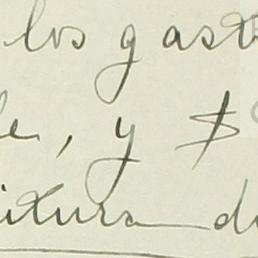 los gast
e, y $
itura d